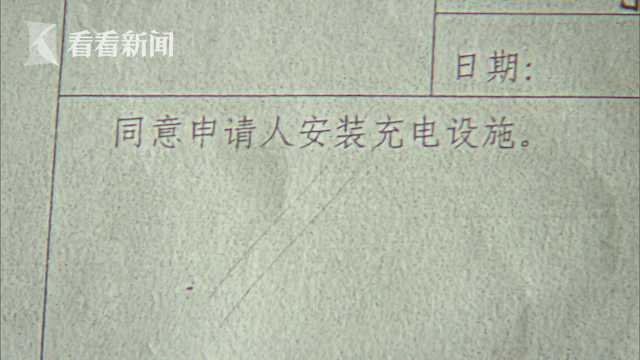 看看新闻
日期:
同意申请人安装充电设施。